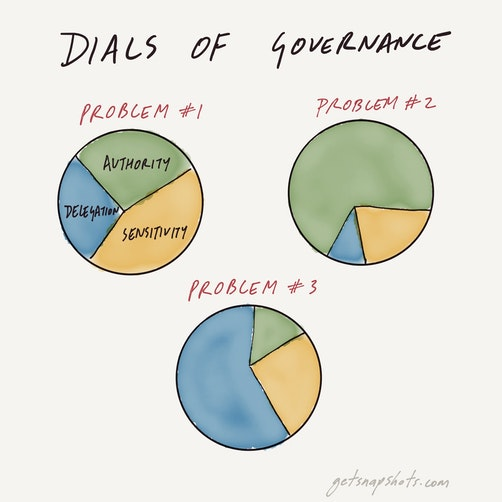 DIALS OF GOVERNANCE
PROBLEM #1
PROBLEM #2
AUTHORITY
DELEGATION
SENSITIVITY
PROBLEM #3
getsnapshots.com